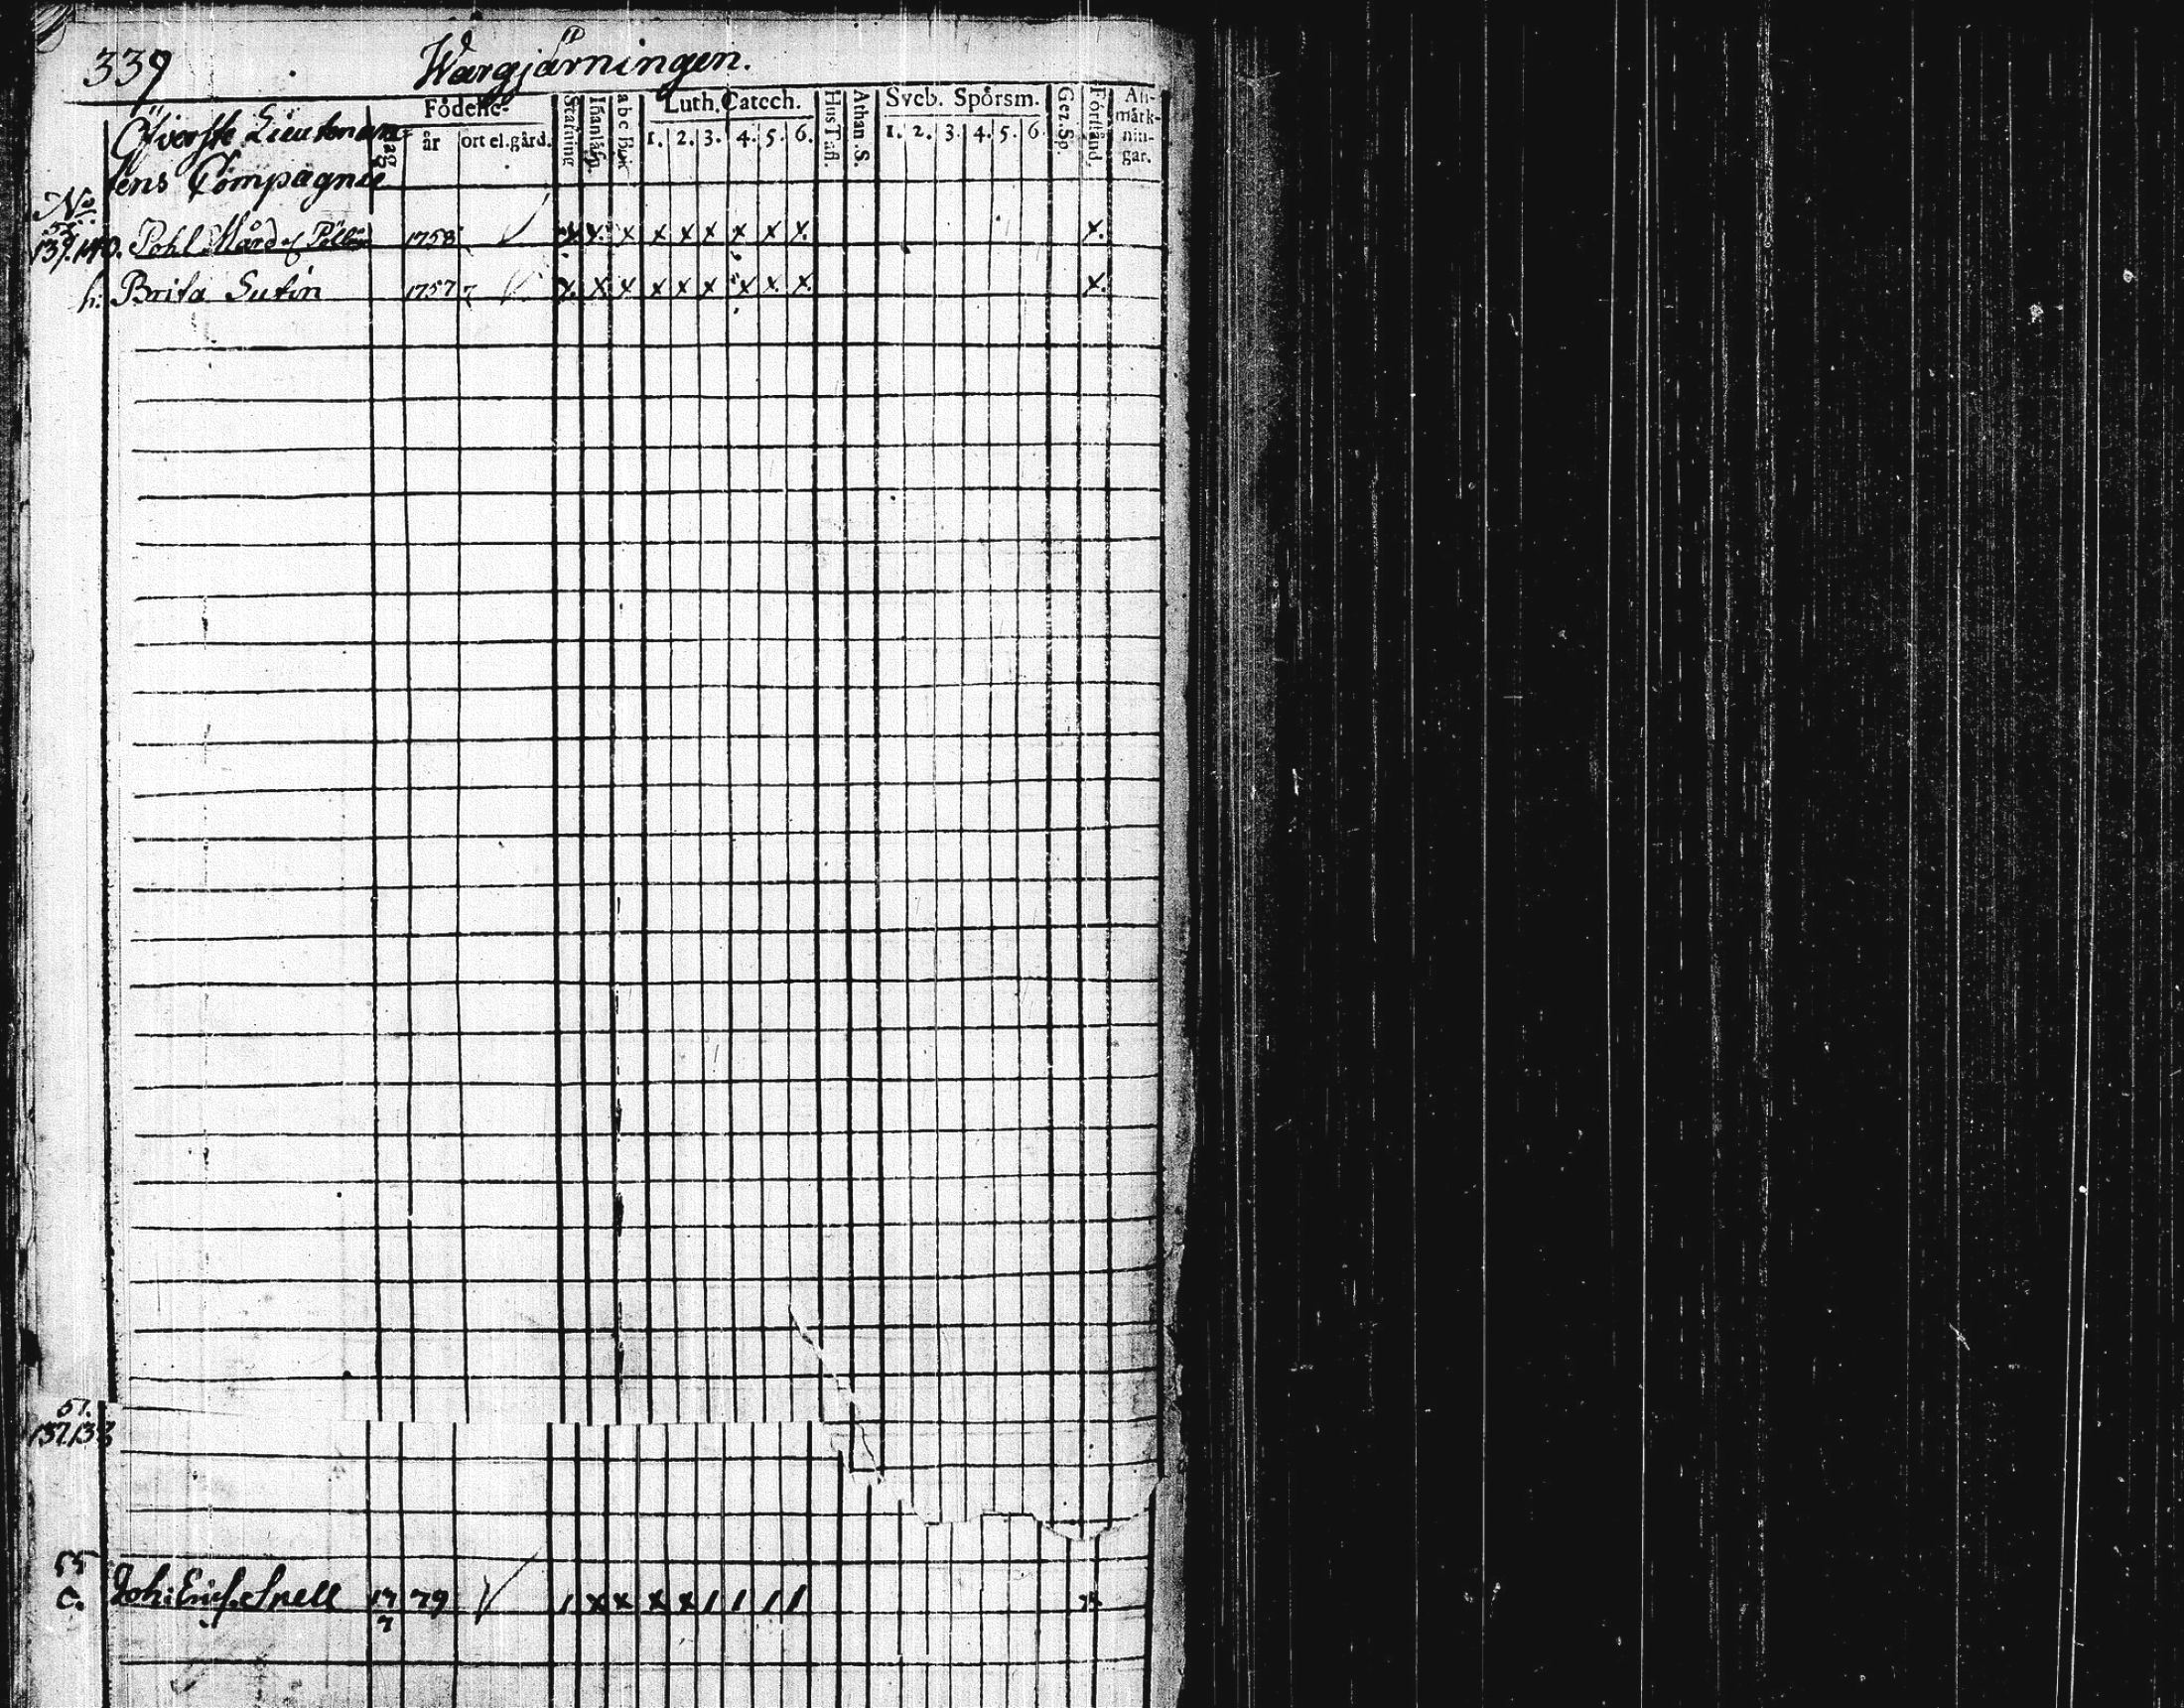 339 Wargjärningen.
Födelse- Luth. Catech. Sveb. Spörsm.
Stafning Innanläsn. abc Bok Hus Tafl. Athan. S. Gez. Sp. Förstånd. An-märk-nin-gar.
dag år ort el. gård. 1. 2. 3. 4. 5. 6. 1. 2. 3. 4. 5. 6
Öfverste Lieutenan-
tens Compagnie
No
139.140. Pohl Mård 1758 x x x x x x x x x x.
h: Brita Sutin 1757 x x x x x x x x x x.
51.
137.138
55
c. Joh: Eric. Snell 17/7 79 1 x x x x 1 1 1 1 x